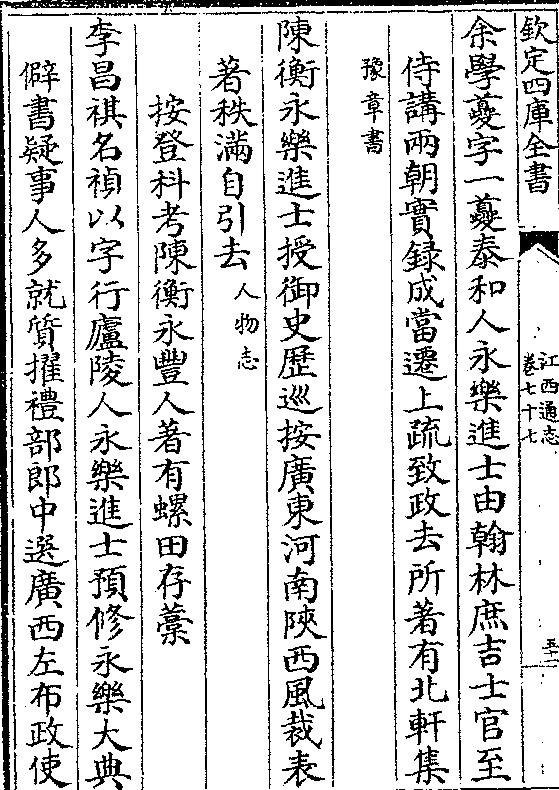 欽定四庫全書
江西通志
卷七十七
余學夔字一夔泰和人永樂進士由翰林庶吉士官至
侍講兩朝實録成當遷上疏致政去所著有北軒集
豫章書
陳衡永樂進士授御史歷巡按廣東河南陜西風裁表
著秩滿自引去人物志
按登科考陳衡永豐人著有螺田存藁
李昌祺名禎以字行廬陵人永樂進士預修永樂大典
僻書疑事人多就質擢禮部郎中選廣西左布政使